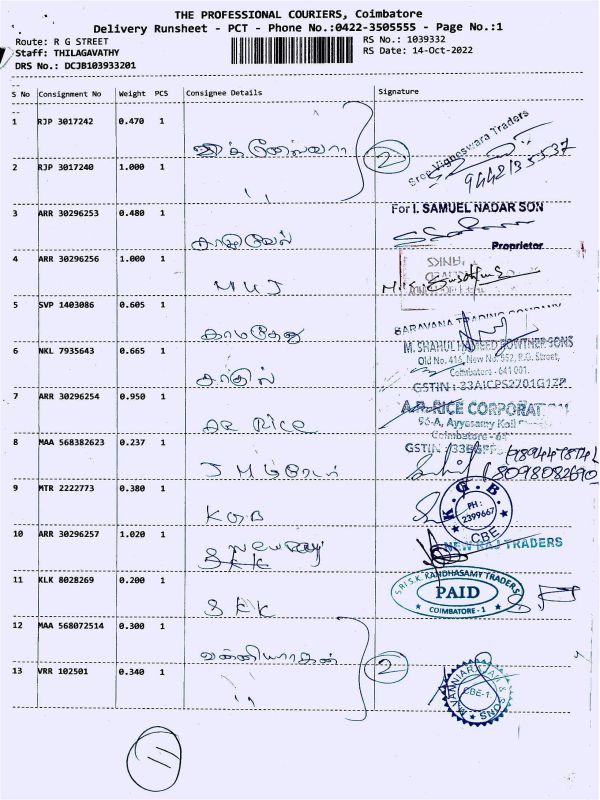 THE PROFESSIONAL COURIERS, Coimbatore
Delivery Runsheet - PCT - Phone No.:0422-3505555 - Page No.:1
Route: R G STREET
RS No.: 1039332
Staff: THILAGAVATHY
RS Date: 14-Oct-2022
DRS No.: DCJB103933201
S No Consignment No Weight PCS Consignee Details Signature
1 RJP 3017242 0.470 1
Sree Vigneswara Traders
2
9442135537
2 RJP 3017240 1.000 1 ,,
3 ARR 30296253 0.480 1
For I. SAMUEL NADAR SON
Proprietor
4 ARR 30296256 1.000 1 MUJ
5 SVP 1403086 0.605 1 காமதேனு
SARAVANA TRADING COMPANY
6 NKL 7935643 0.665 1
M. SHAHUL HAMEED ROWTHER SONS
Old No. 416, New No. 552, R.G. Street,
Coimbatore - 641 001.
GSTIN : 33AICPS2701G1ZP
7 ARR 30296254 0.950 1 AR Rice
A.R. RICE CORPORATION
96-A, Ayyasamy Koil
Coimbatore - 64
GSTIN :
8 MAA 568382623 0.237 1 J M
8098082690
9 MTR 2222773 0.380 1 KGB
K.G.B.
PH :
2399667
CBE
10 ARR 30296257 1.020 1 New Raj
NEW RAJ TRADERS
11 KLK 8028269 0.200 1 SKK
SRI S.K. KANDHASAMY TRADERS
PAID
COIMBATORE - 1
12 MAA 568072514 0.300 1 வன்னியராஜன்
2
13 VRR 102501 0.340 1 ,,
CBE-1.
& SONS
11